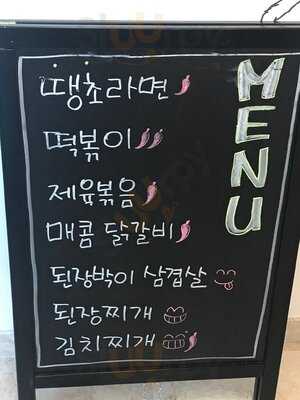 MENU
땡초라면
떡볶이
제육볶음
매콤 닭갈비
된장박이 삼겹살
된장찌개
김치찌개